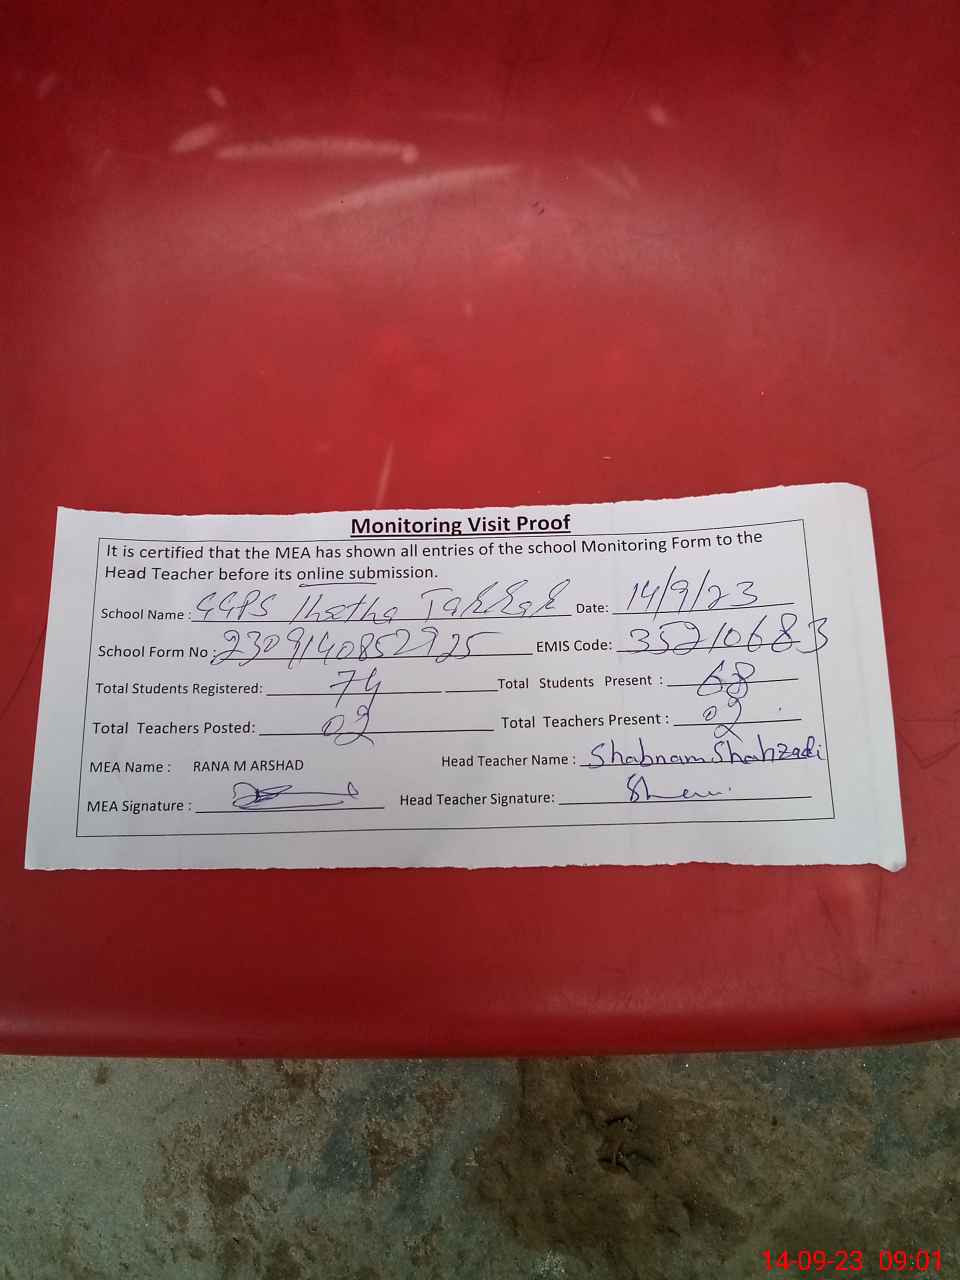 Monitoring Visit Proof
It is certified that the MEA has shown all entries of the school Monitoring Form to the
Head Teacher before its online submission.
School Name : GGPS Date: 14/9/23
School Form No : 2309140852925 EMIS Code: 35210683
Total Students Registered: 74 Total Students Present : 68
Total Teachers Posted: 02 Total Teachers Present : 02
MEA Name : RANA M ARSHAD Head Teacher Name : Shabnam Shahzadi
MEA Signature : Head Teacher Signature:
14-09-23 09:01